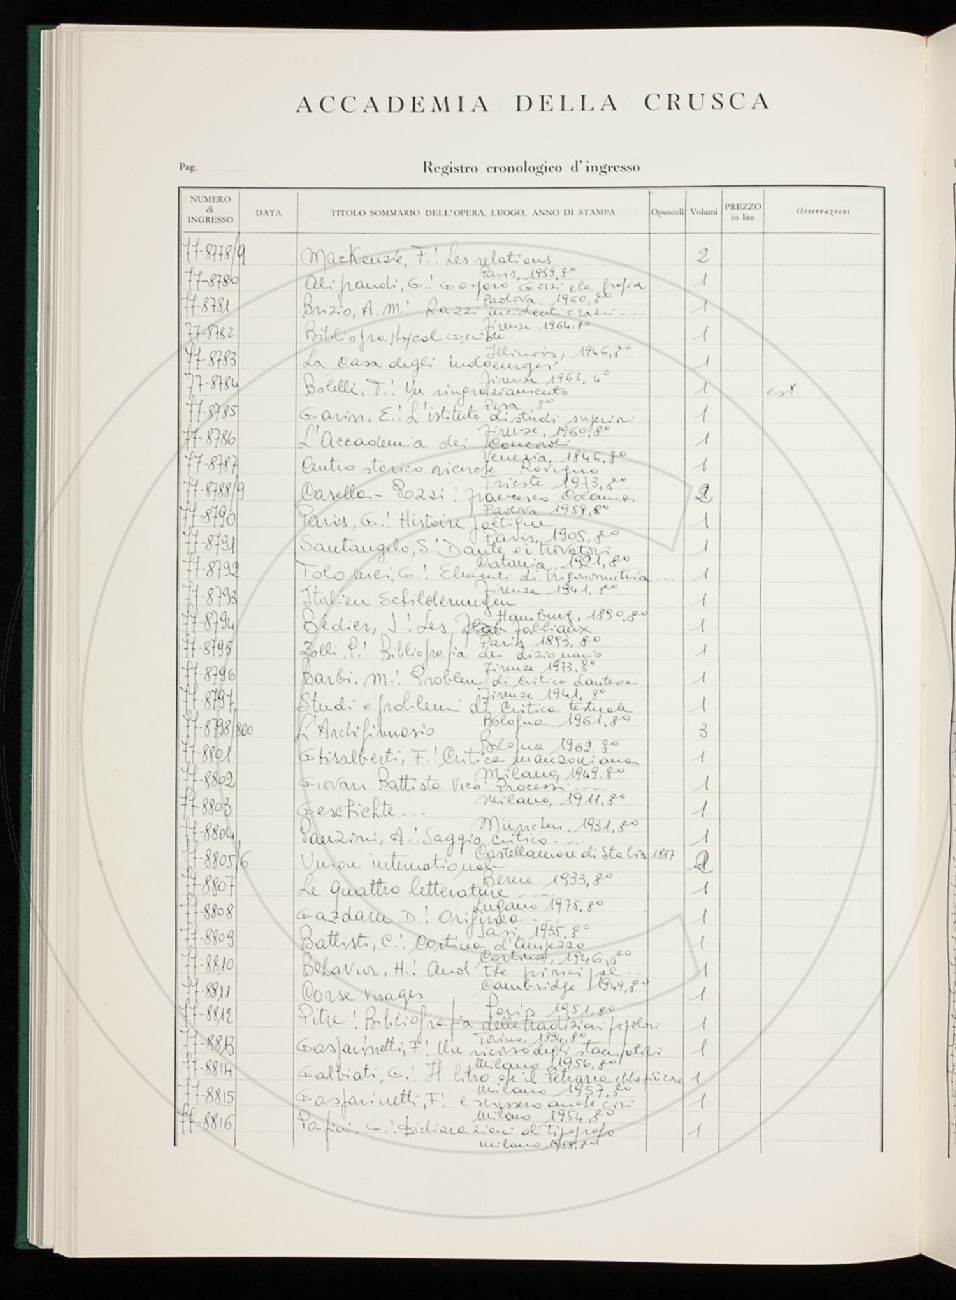 ACCADEMIA DELLA CRUSCA
Pag.
Registro cronologico d'ingresso
NUMERO di INGRESSO DATA TITOLO SOMMARIO DELL'OPERA, LUOGO, ANNO DI STAMPA Opuscoli Volumi PREZZO in lire Osservazioni
77-8778/9 Mackenzie, F.: Les relations 2
Paris, 1939, 8°
77-8780 Aliprandi, G.: Gasparo Gozzi e la grafia 1
Padova, 1960, 8°
77-8781 Brizio, A.M.: Razzi incidenti e razzi --- 1
Firenze 1964. 8°
77-8782 1
Illinois, 1946, 8°
77-8783 La casa degli indoeuropei 1
Firenze 1962. 4°
77-8784 Bolelli, T.: Un ringraziamento 1 est
Pisa 8°
77-8785 Garin, E.: L'istituto di studi superiori 1
Firenze, 1960, 8°
77-8786 L'Accademia dei Concordi 1
Venezia, 1846, 8°
77-8787 Centro storico ricerche Rovigno 1
Trieste 1973, 8°
77-8788/9 Casella - Pozzi: Francesco Colonna 2
Padova 1959, 8°
77-8790 Paris, G.: Histoire poétique 1
Paris, 1905, 8°
77-8791 Santangelo, S: Dante e i trovatori 1
Catania, 1921, 8°
77-8792 Tolomei, G.: Elementi di trigonometria --- 1
Firenze 1941, 8°
77-8793 Italien Schilderungen 1
Hamburg, 1890, 8°
77-8794 Bédier, J.: Les fabliaux 1
Paris 1893, 8°
77-8795 Zolli, P.: Bibliografia dei dizionario 1
Firenze 1973, 8°
77-8796 Barbi, M.: Problemi di critica dantesca 1
Firenze 1941, 8°
77-8797 Studi e problemi di critica testuale 1
Bologna 1961, 8°
77-8798/800 L'Archiginnasio 3
Bologna 1962. 8°
77-8801 Ghisalberti, F.: Critica manzoniana 1
Milano, 1949. 8°
77-8802 Giovan Battista Vico: Processi --- 1
Milano, 1911, 8°
77-8803 Geschichte --- 1
München, 1931, 8°
77-8804 Panzini, A.: Saggio critico --- 1
Castellamare di Stabia, 1887
77-8805/6 Union internationale 2
Berne 1933, 8°
77-8807 Le quattro letterature --- 1
Lugano 1975, 8°
77-8808 Gazdaru D.: Originea --- 1
Iasi, 1935, 8°
77-8809 Battisti, C.: Cortina d'Ampezzo 1
Cortina, 1946, 8°
77-8810 Behavior, H.: and the principal -- 1
Cambridge 1949, 8°
77-8811 Corse visages 1
Paris 1951, 8°
77-8812 Pitrè: Bibliografia delle tradizioni popolari 1
Torino, 1894, 8°
77-8813 Gasparinetti, F.: Un ricorso degli stampatori 1
Milano 1956, 8°
77-8814 Galbiati, G.: Il libro che il Petrarca ebbe più caro 1
Milano 1957, 8°
77-8815 Gasparinetti, F.: e scrissero anche così 1
Milano 1954, 8°
77-8816 Papini, G.: Dichiarazioni al tipografo 1
Milano 1958, 8°